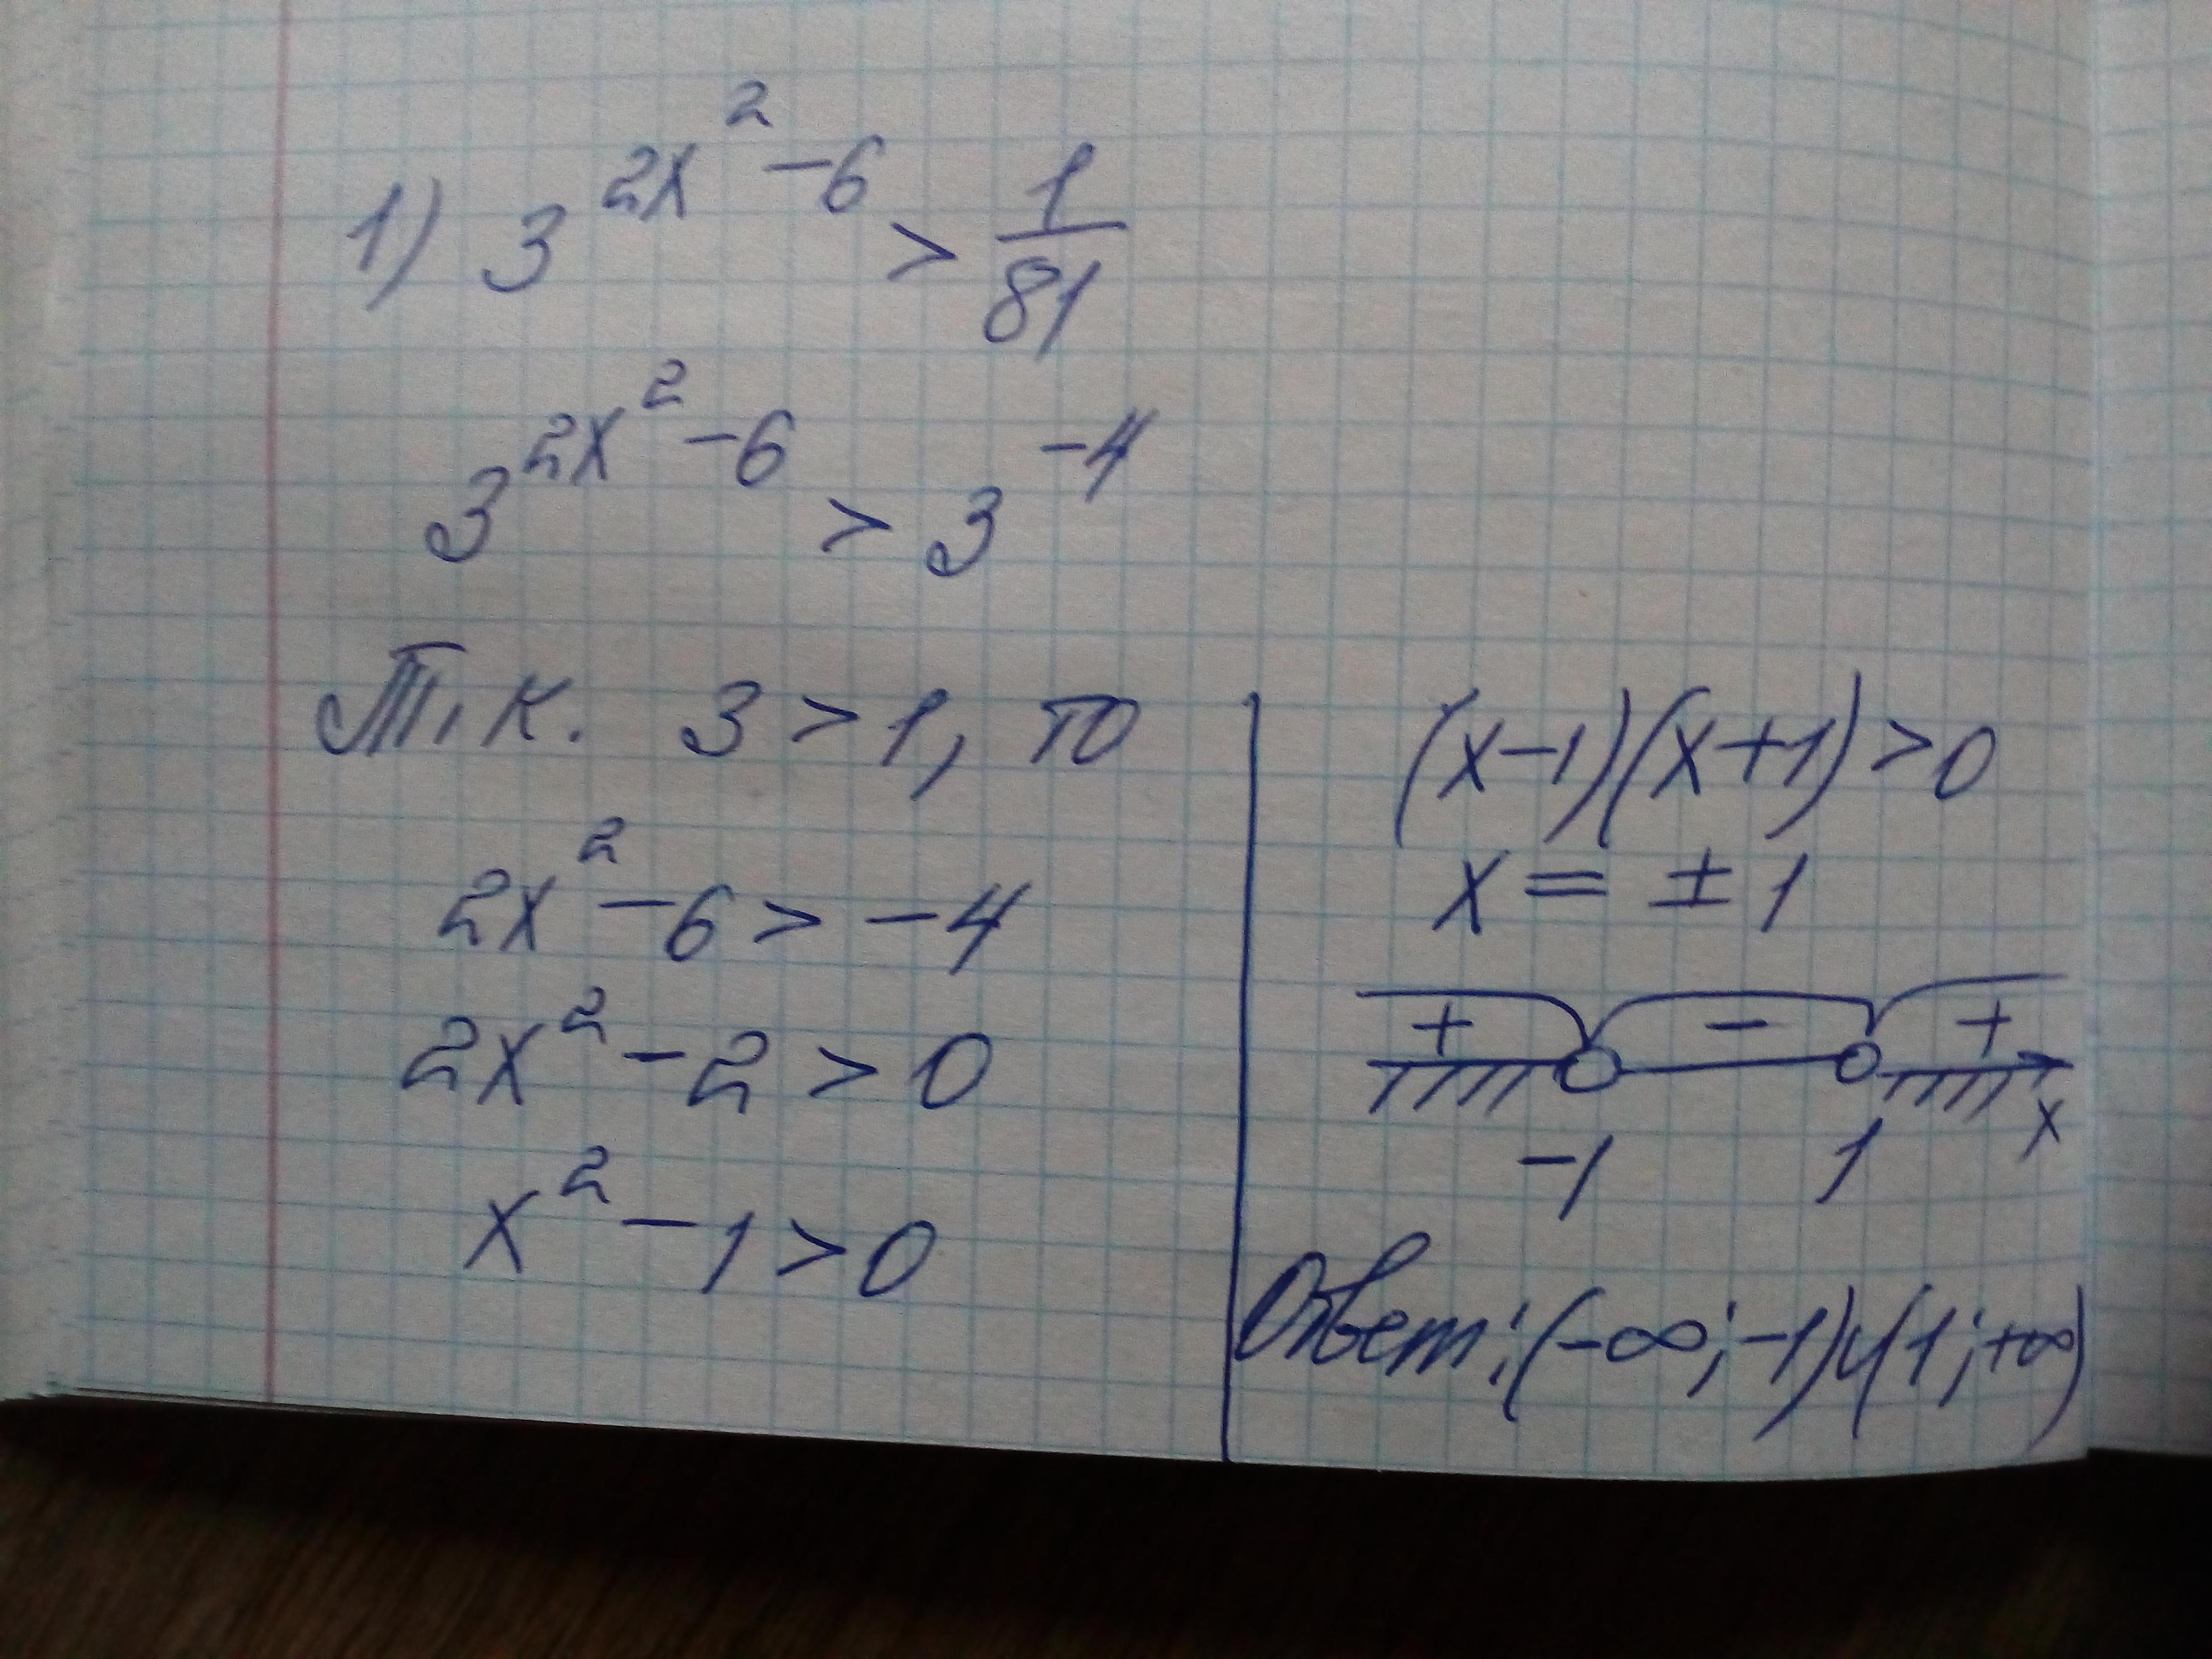 1) 3^(2x²-6) > 1/81
3^(2x²-6) > 3^(-4)
Т.к. 3 > 1, то
2x² - 6 > -4
2x² - 2 > 0
x² - 1 > 0
(x-1)(x+1) > 0
x = ± 1
+ - +
-1 1 x
Ответ: (-∞; -1)∪(1; +∞)